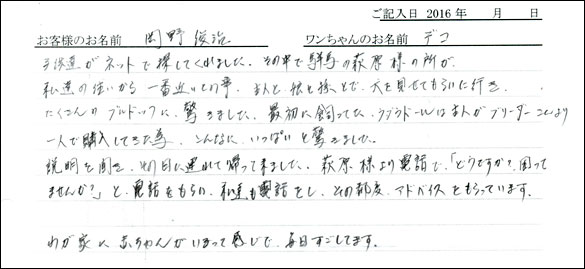 ご記入日 2016 年　　月　　日
お客様のお名前 岡野 俊治　ワンちゃんのお名前 デコ
子供達がネットで探してくれました。その中で群馬の萩原様の所が、
私達の住いから一番近いとの事、主人と娘と孫とで、犬を見せてもらいに行き、
たくさんのブルドックに、驚きました。最初に飼ってた、ラブラドールは主人がブリーダーさんより
一人で購入してきた為、こんなに、いっぱいと驚きました。
説明を聞き、その日に連れて帰って来ました。萩原様より電話で、「どうですか？困って
ませんか？」と、電話をもらい、私達も電話をし、その都度、アドバイスをもらっています。
わが家に赤ちゃんがいるって感じで、毎日すごしてます。